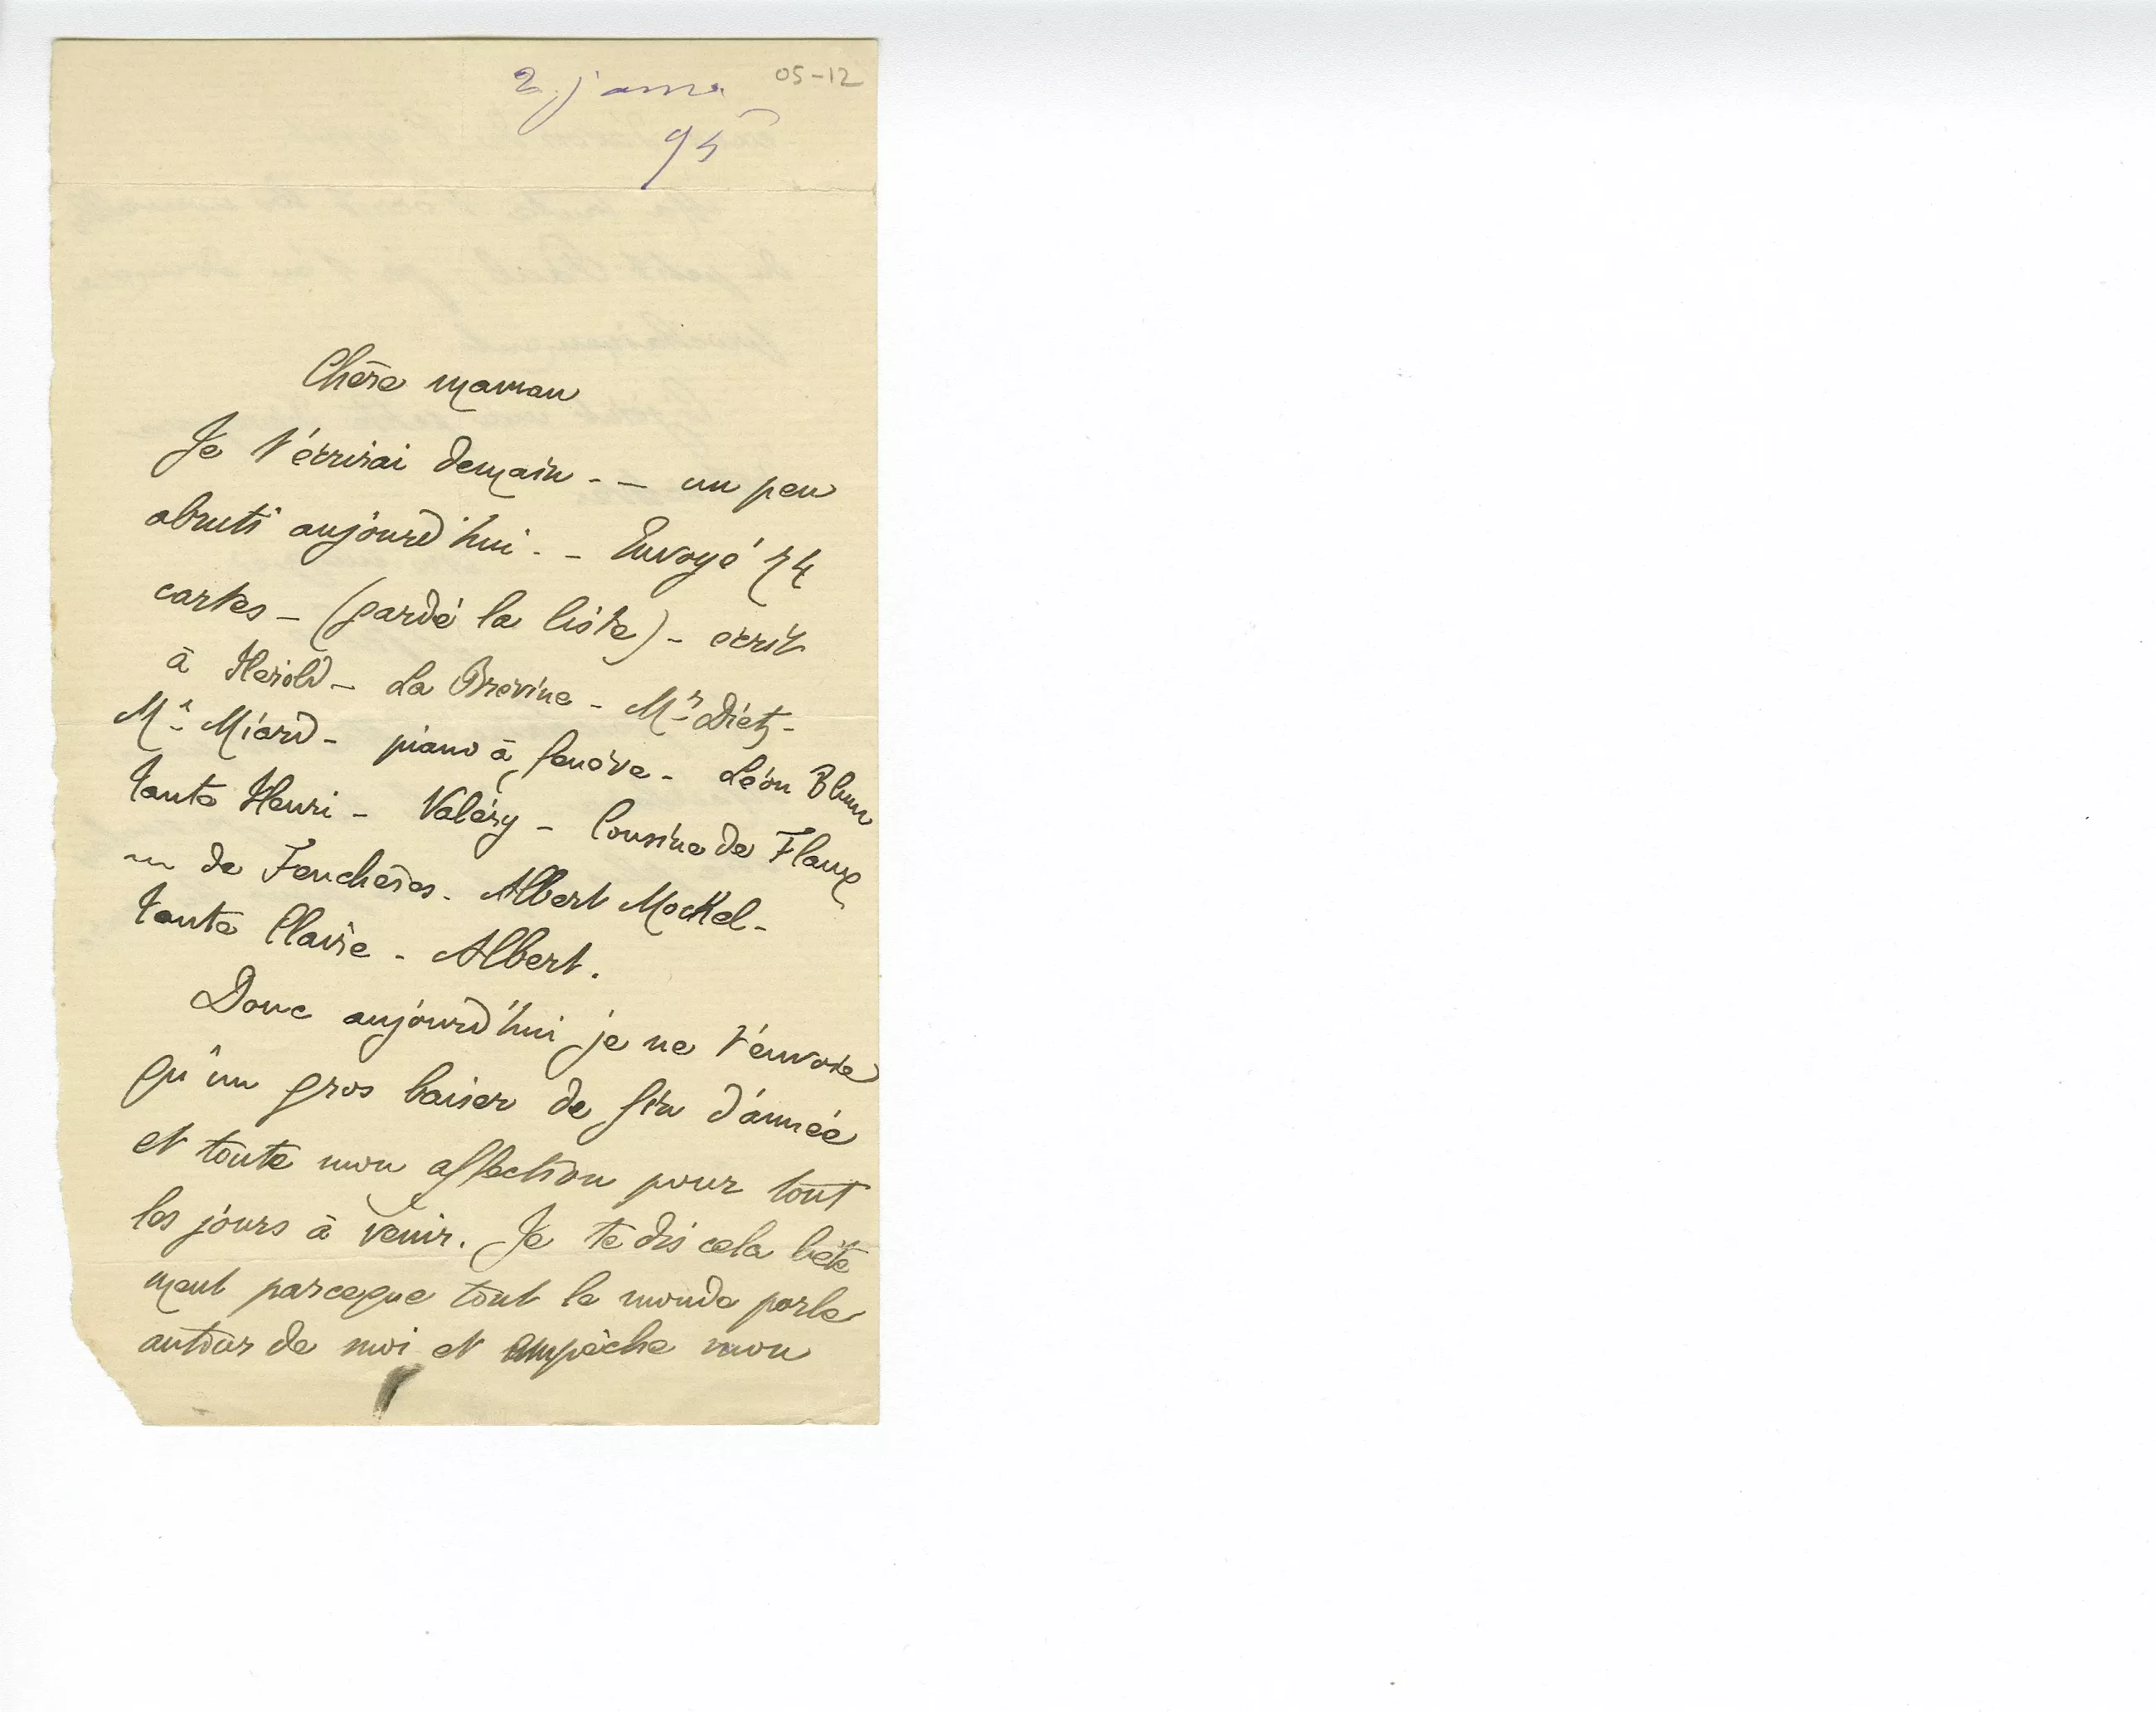 05-12
2 janv.
95
Chère maman
Je t'écrirai demain. — un peu
abruti aujourd'hui. — Envoyé 74
cartes — (gardé la liste) — écrit
à Hérold — La Brévine — Mr Dietz —
Mr Miard — piano à Genève — Léon Blum
tante Henri — Valéry — Cousine de Flaux
de Feuchères. Albert Mockel —
tante Claire — Albert.
Donc aujourd'hui je ne t'envoie
qu'un gros baiser de fin d'année
et toute mon affection pour tout
les jours à venir. Je te dis cela bête
ment parceque tout le monde parle
autour de moi et empèche mon